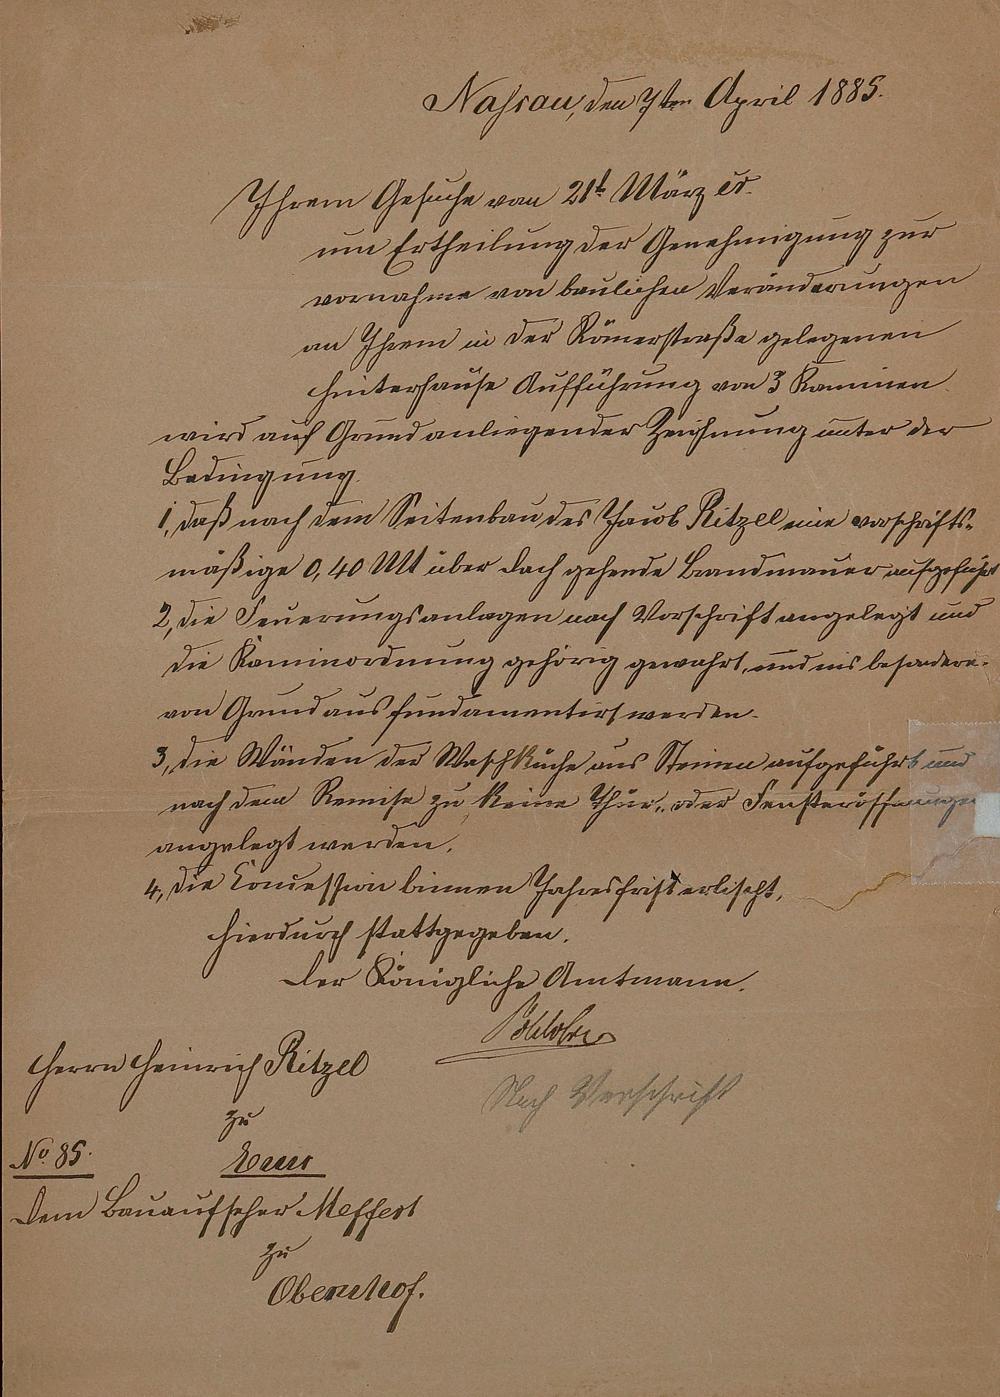 Nassau, den 7ten April 1885.
Ihrem Gesuche vom 21t März cr.
um Ertheilung der Genehmigung zur
vornahme von baulichen Veränderungen
an Ihrem in der Römerstraße gelegenen
Hinterhause Aufführung von 3 Kaminen
wird auf Grund anliegender Zeichnung unter der
Bedingung
1, daß nach dem Seitenbau des Jacob Ritzel eine vorschrifts-
mäßige 0,40 Mt über Dach gehende Brandmauer aufgeführt
2, die Feuerungsanlagen nach Vorschrift angelegt und
die Kaminordnung gehörig gewahrt, und ins besondere
von Grund aus fundamentirt werden.
3, die Wänden der Waschküche aus Steinen aufgeführt und
nach dem Remise zu keine Thür- oder Fensteröffnungen
angelegt werden.
4, die Concession binnen Jahresfrist erlischt,
hierdurch stattgegeben.
Der Königliche Amtmann.
Nach Vorschrift
Herrn Heinrich Ritzel
zu
No 85. Ems
Dem Bauaufseher Meffert
zu
Obernhof.